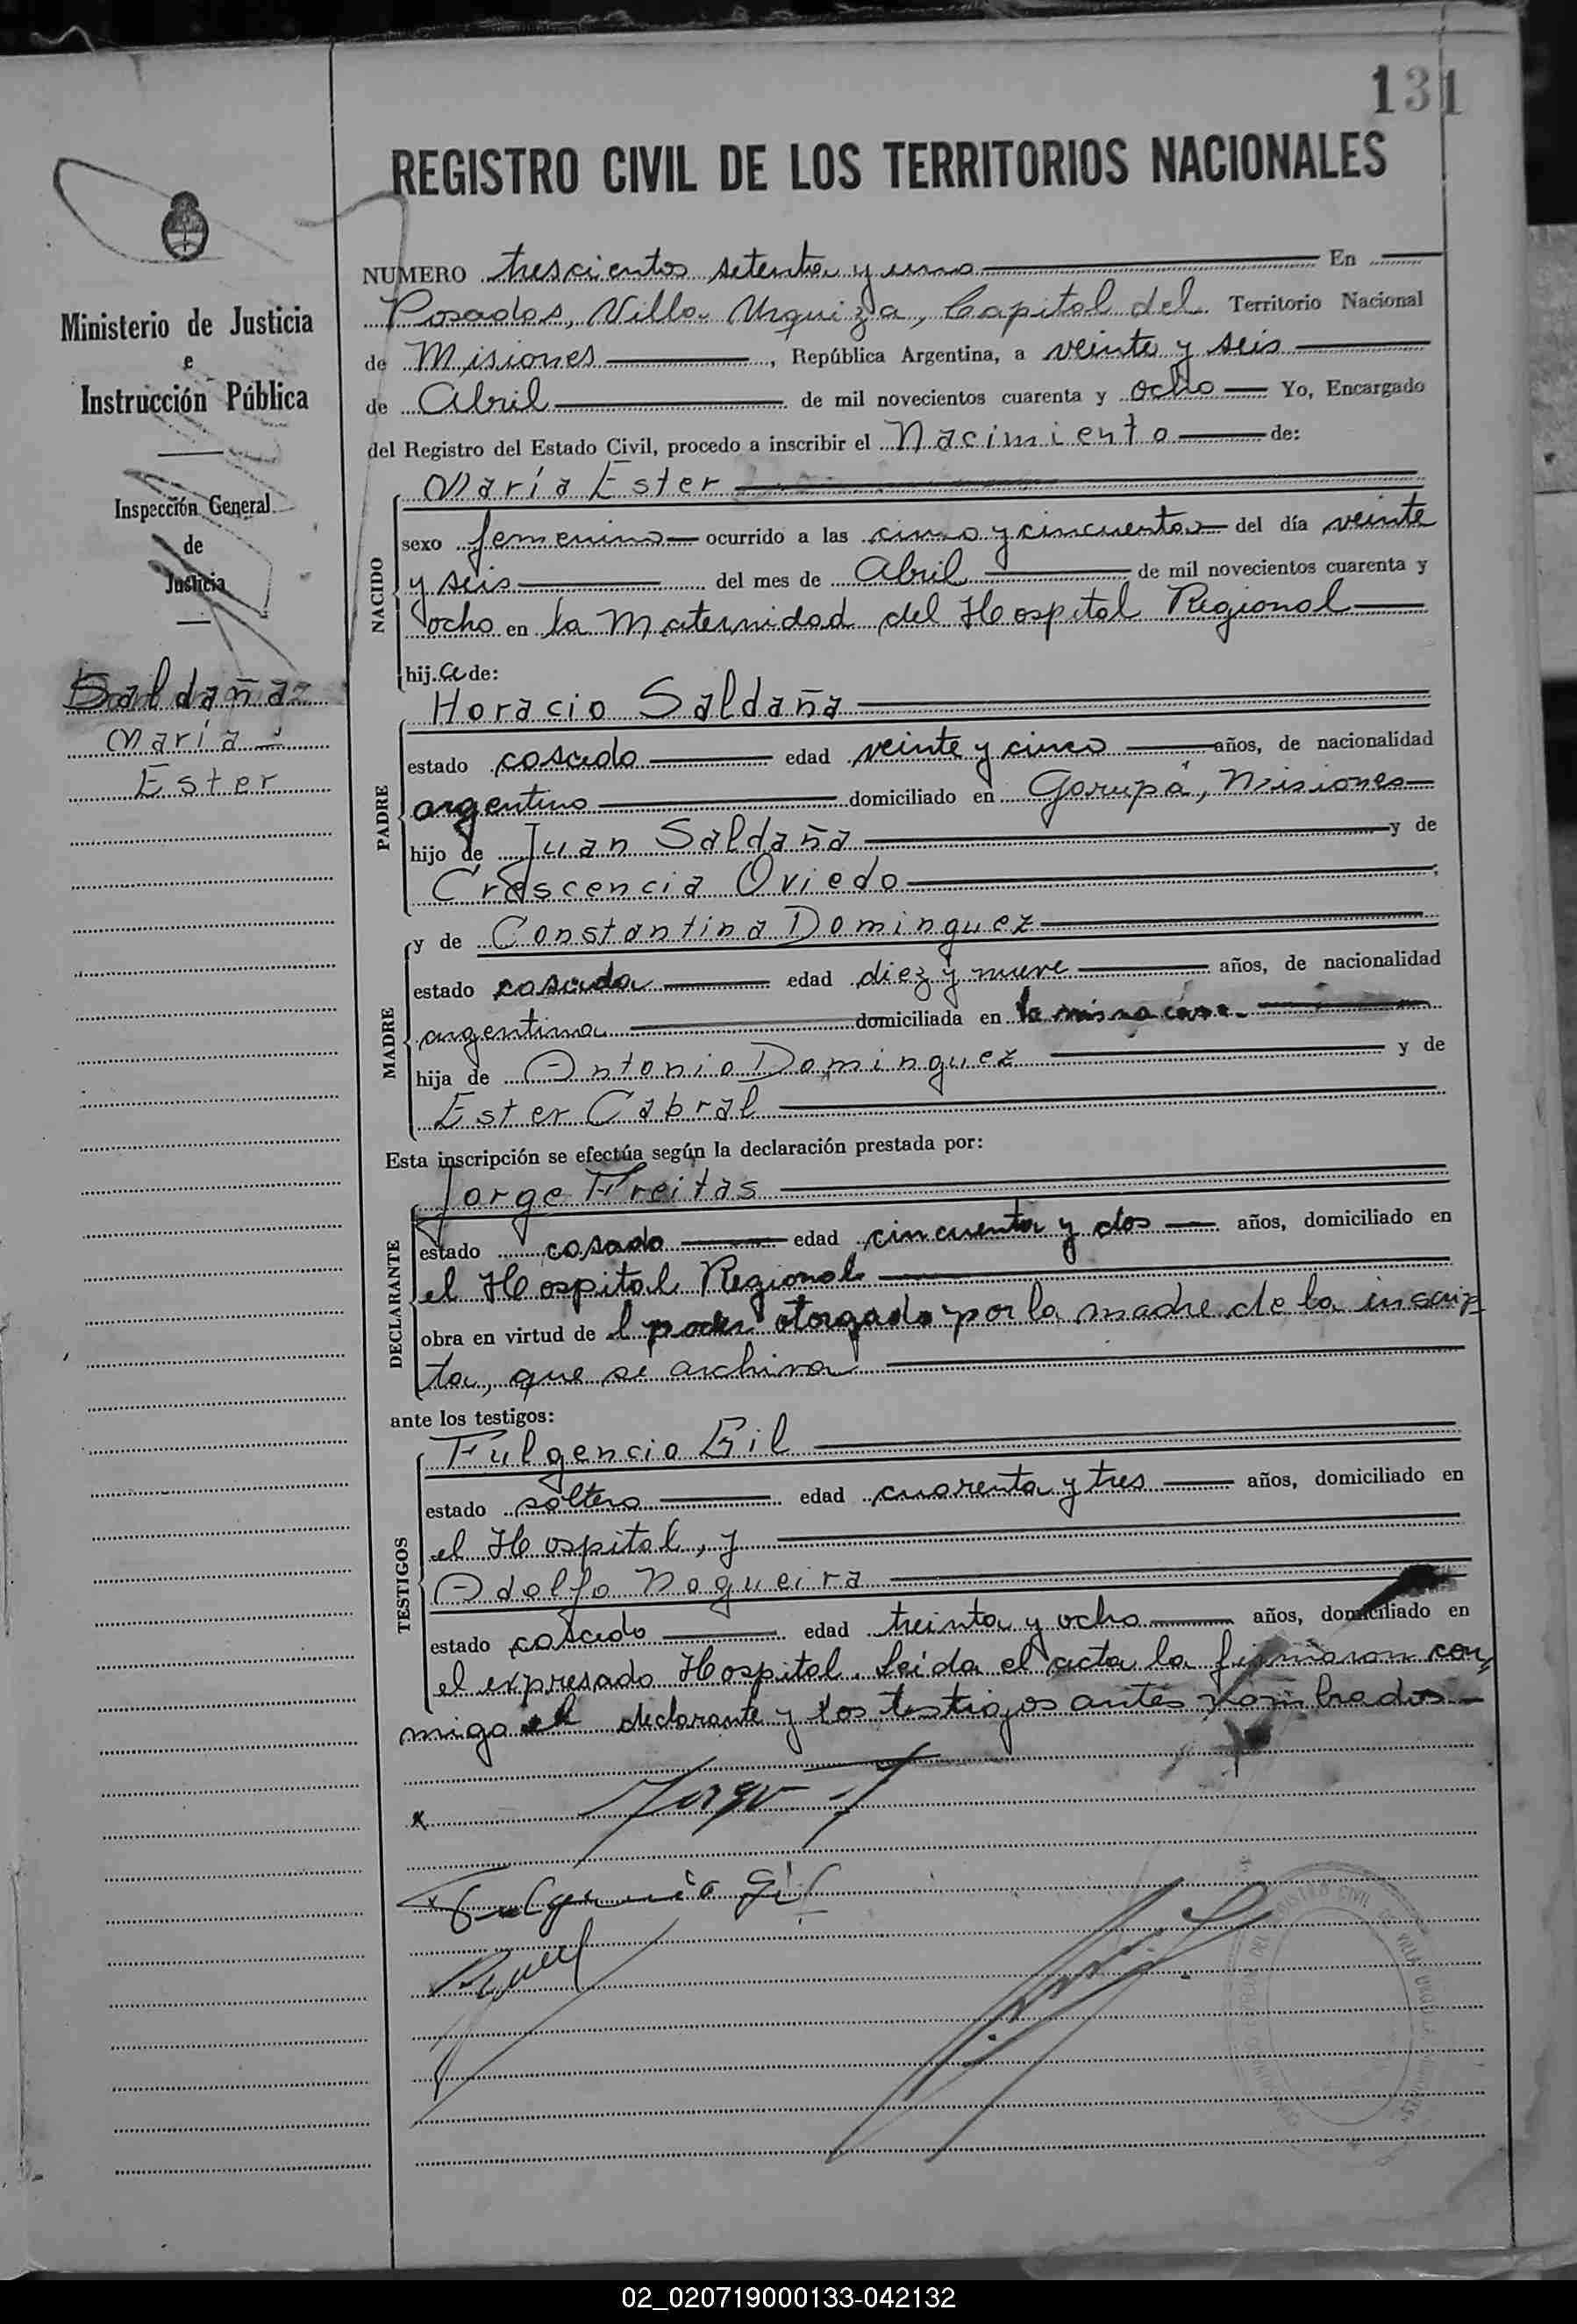 131
REGISTRO CIVIL DE LOS TERRITORIOS NACIONALES
Ministerio de Justicia
e
Instrucción Pública
Inspección General
de
Justicia
Saldaña
María
Ester
NUMERO trescientos setenta y uno En
Posadas, Villa Urquiza, Capital del Territorio Nacional
de Misiones, República Argentina, a veinte y seis
de Abril de mil novecientos cuarenta y ocho Yo, Encargado
del Registro del Estado Civil, procedo a inscribir el Nacimiento de:
NACIDO
María Ester
sexo femenino ocurrido a las cinco y cincuenta del día veinte
y seis del mes de Abril de mil novecientos cuarenta y
ocho en la Maternidad del Hospital Regional
hija de:
PADRE
Horacio Saldaña
estado casado edad veinte y cinco años, de nacionalidad
argentino domiciliado en Garupá, Misiones
hijo de Juan Saldaña y de
Crescencia Oviedo;
MADRE
y de Constantina Dominguez
estado casada edad diez y nueve años, de nacionalidad
argentina domiciliada en la misma casa.
hija de Antonio Dominguez y de
Ester Cabral
Esta inscripción se efectúa según la declaración prestada por:
DECLARANTE
Jorge Freitas
estado casado edad cincuenta y dos años, domiciliado en
el Hospital Regional
obra en virtud de l poder otorgado por la madre de la inscrip
ta, que se archiva
ante los testigos:
TESTIGOS
Fulgencio Gil
estado soltero edad cuarenta y tres años, domiciliado en
el Hospital, y
Adolfo Nogueira
estado casado edad treinta y ocho años, domiciliado en
el expresado Hospital. Leída el acta la firmaron con
migo el declarante y los testigos antes nombrados
x Jorge F
Fulgencio Gil
REGISTRO CIVIL DE VILLA URQUIZA
02_020719000133-042132